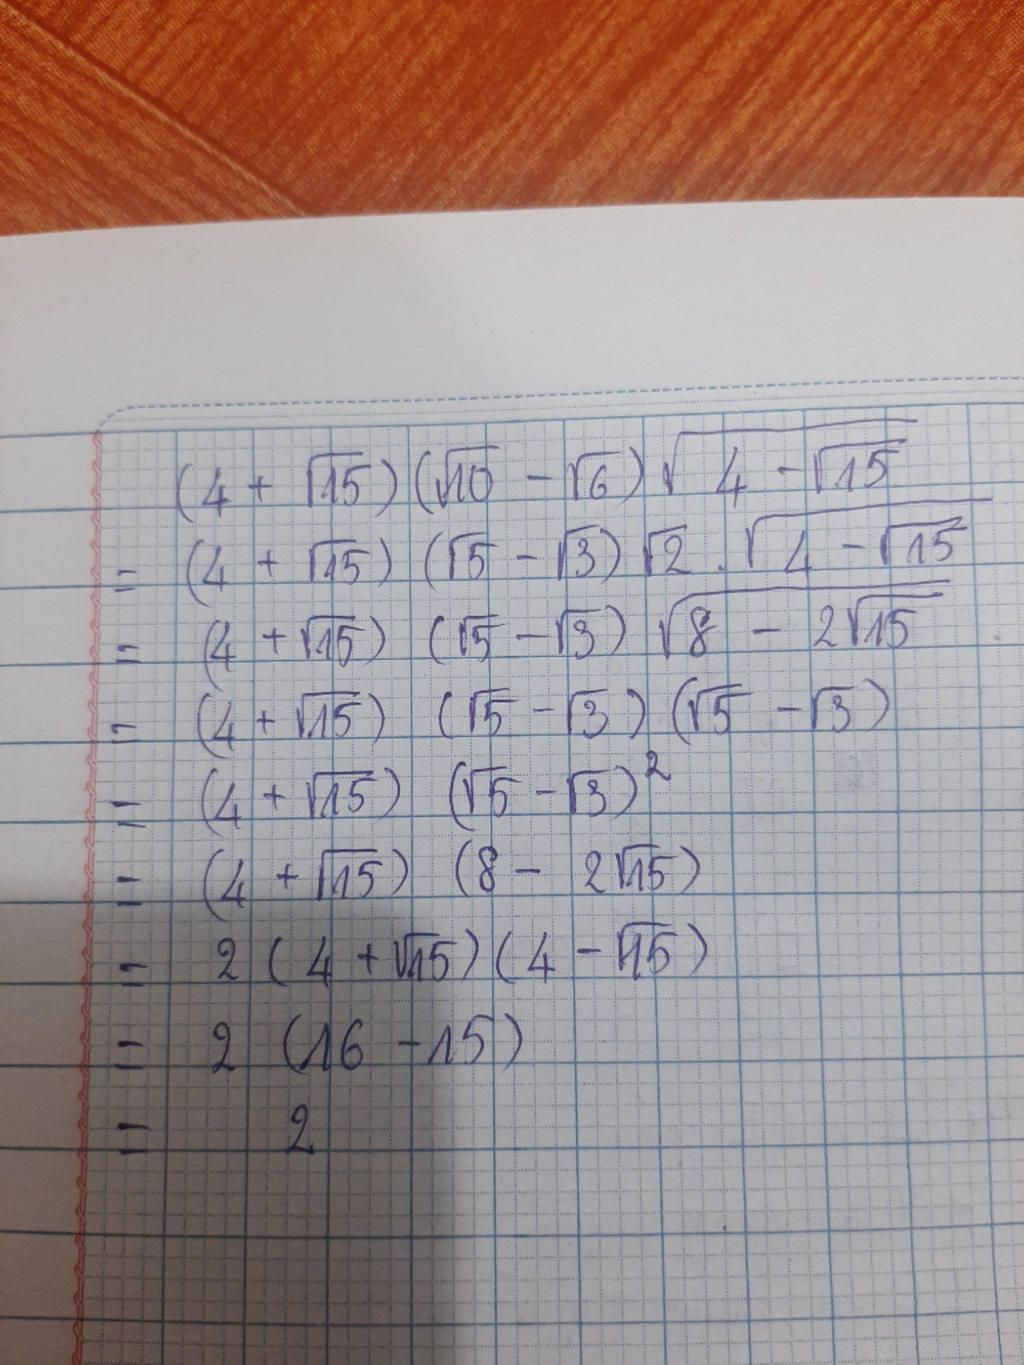 (4 + √15)(√10 - √6)√(4 - √15)
= (4 + √15) (√5 - √3) √2 . √(4 - √15)
= (4 + √15) (√5 - √3) √(8 - 2√15)
= (4 + √15) (√5 - √3) (√5 - √3)
= (4 + √15) (√5 - √3)²
= (4 + √15) (8 - 2√15)
= 2 (4 + √15)(4 - √15)
= 2 (16 - 15)
= 2